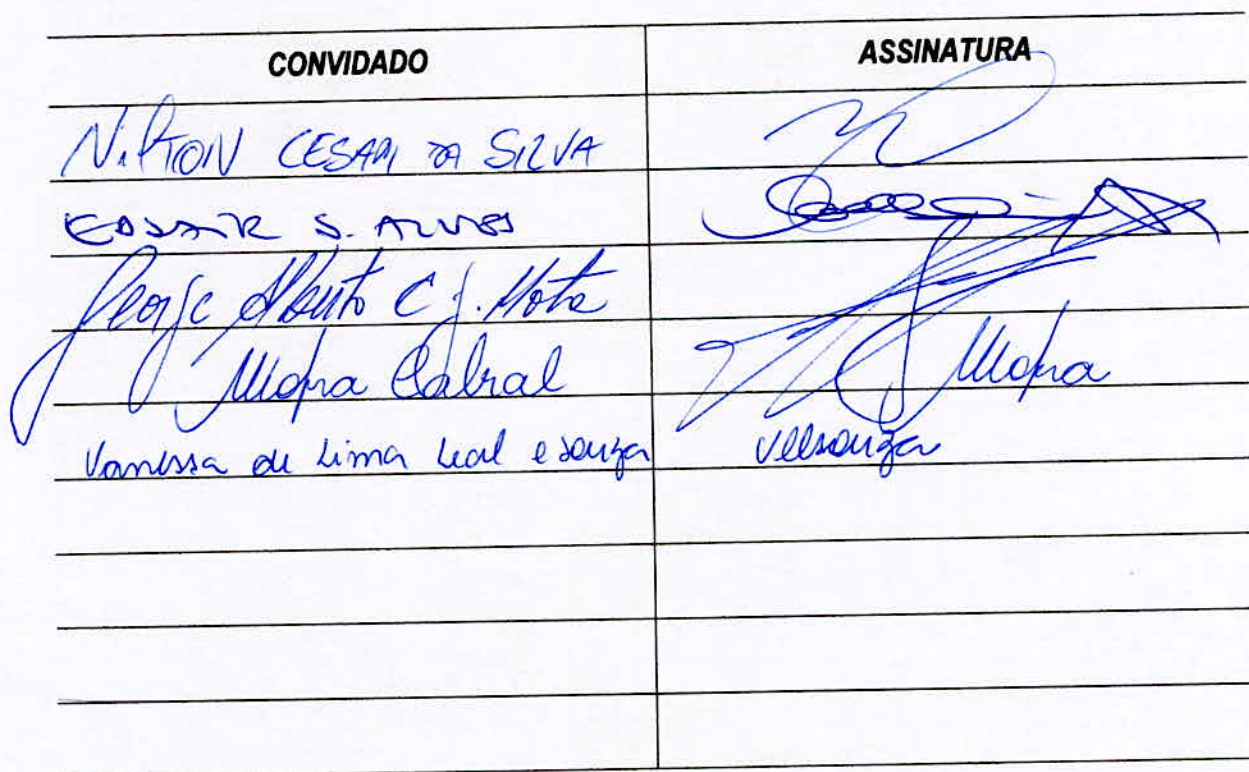 CONVIDADO ASSINATURA
NILTON CESAR DA SILVA
S. ALVES
George Alberto C. J. Mota
Cabral
Vanessa de Lima Leal e Souza vllsouza